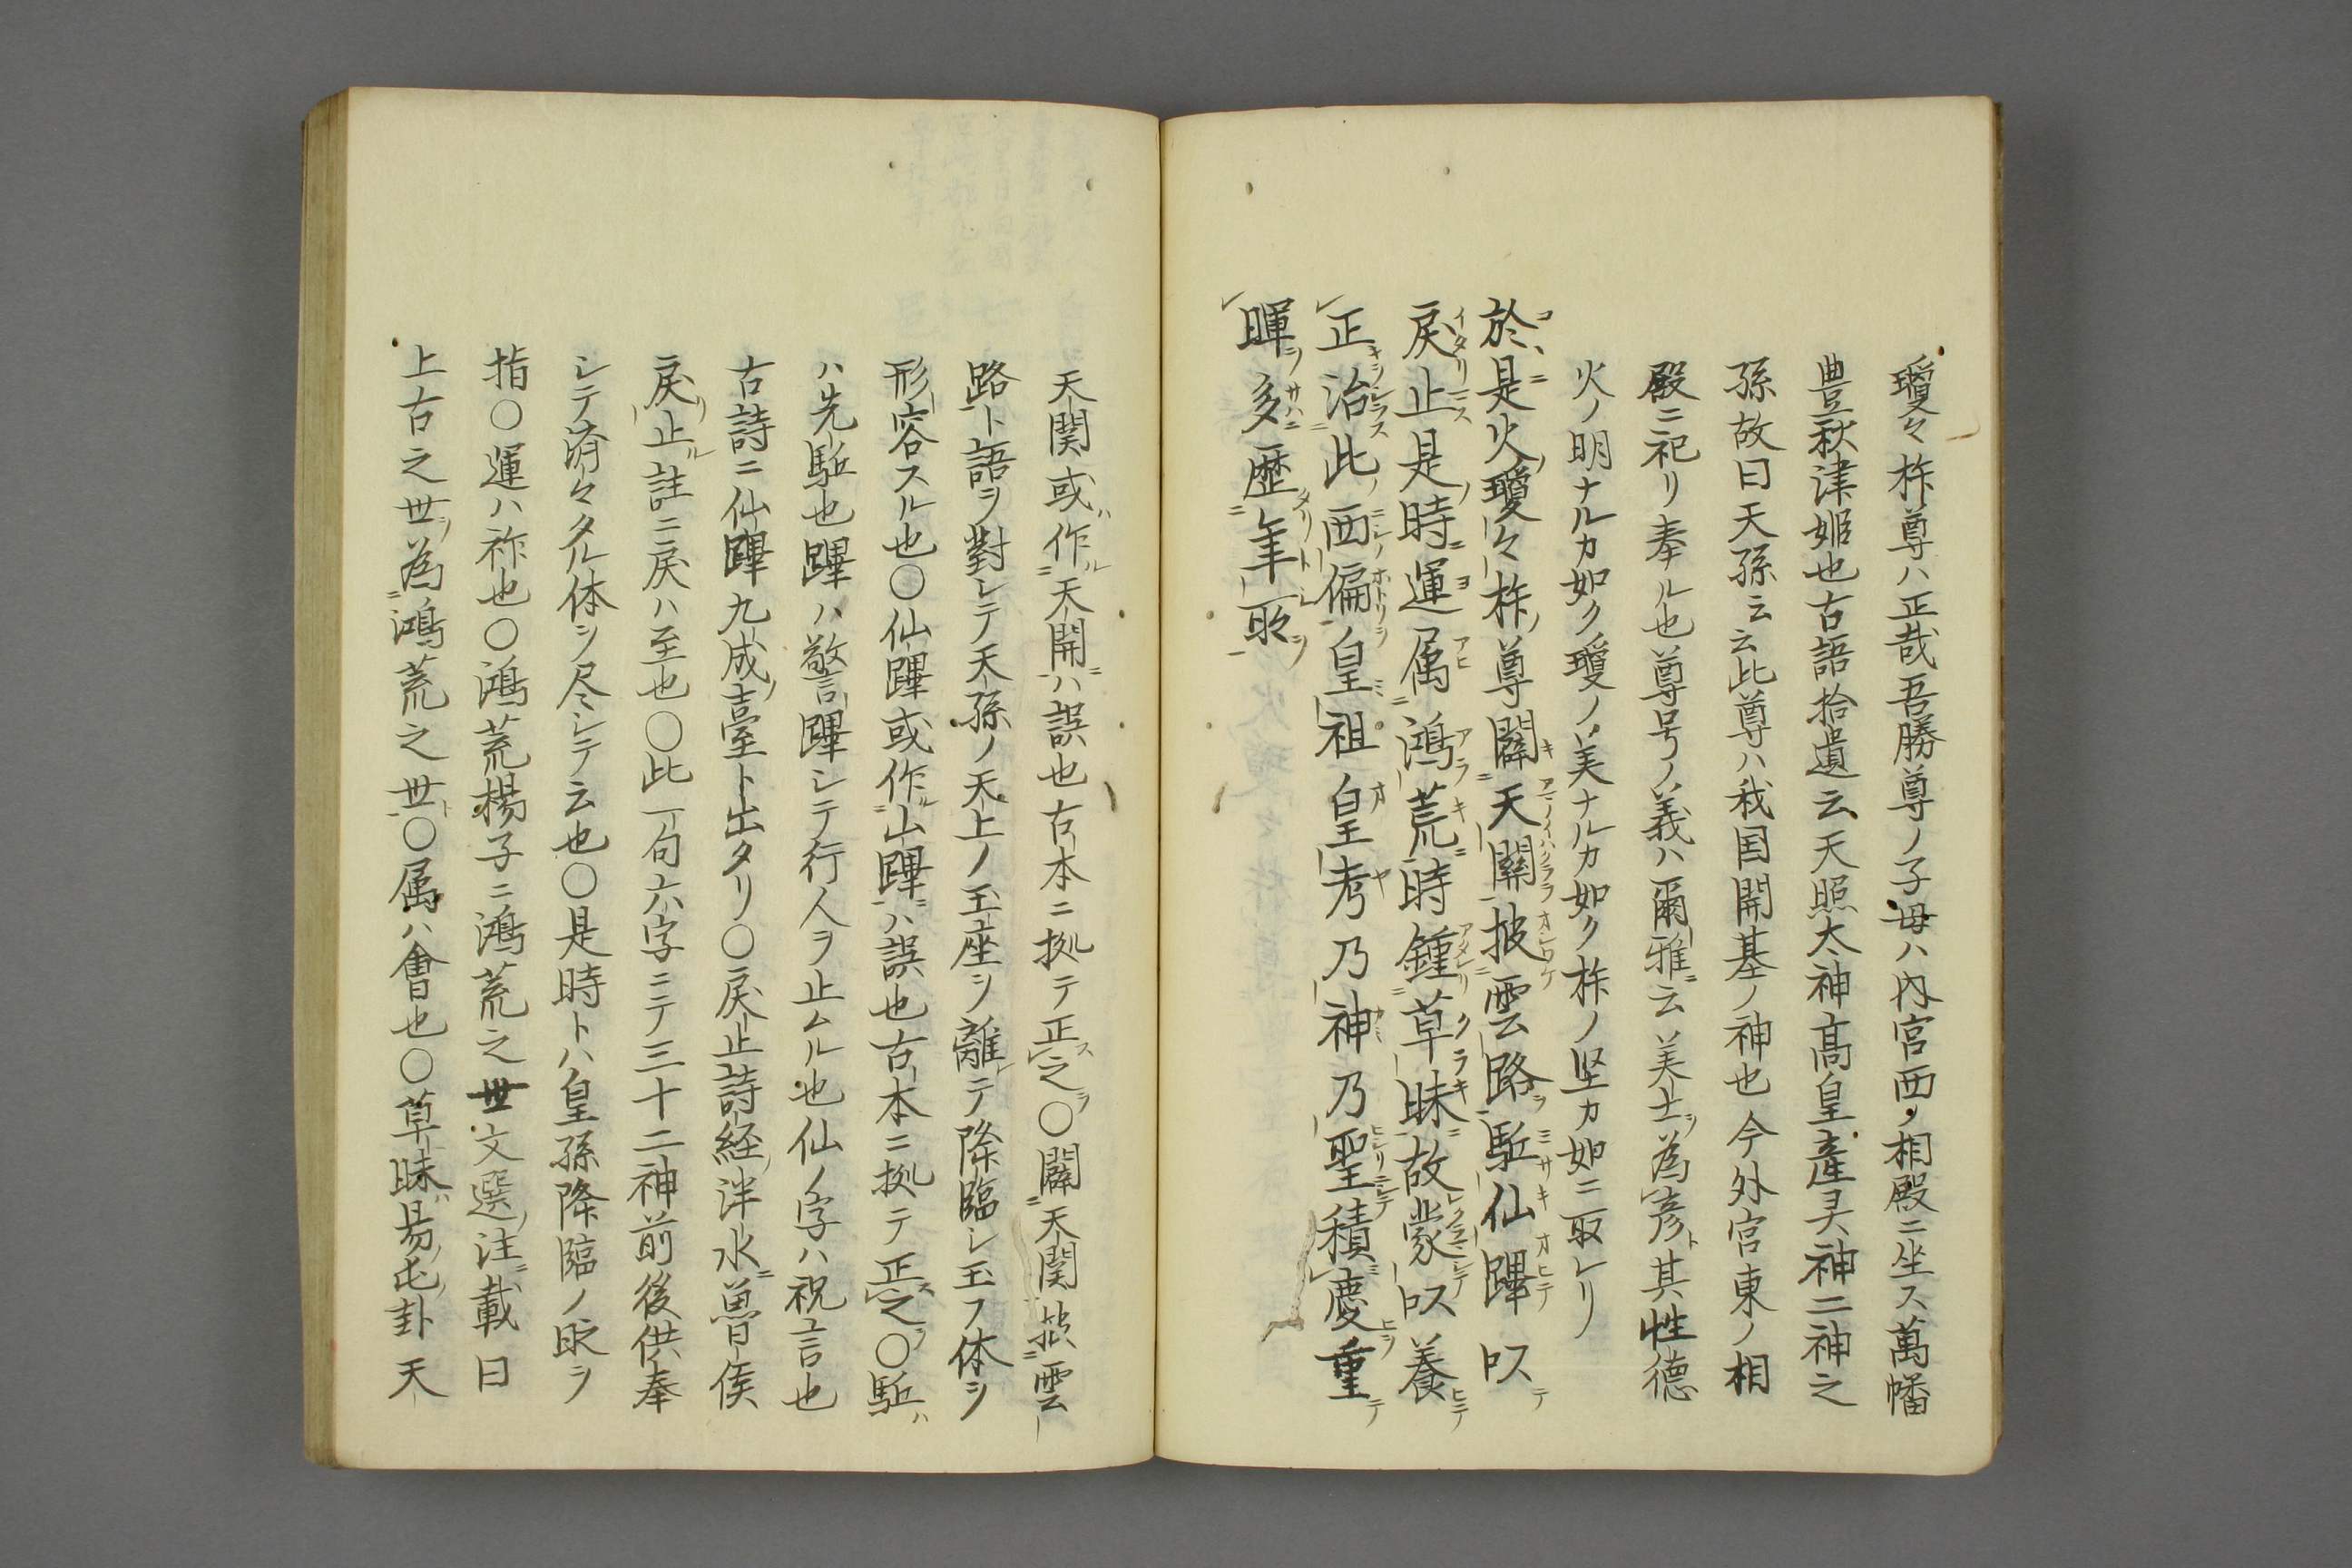 瓊々杵尊ハ正哉吾勝尊ノ子母ハ内宮西ノ相殿ニ坐ス萬幡
豊秋津姫也古語拾遺云天照太神高皇産灵神二神之
孫故曰天孫云云此尊ハ我国開基ノ神也今外宮東ノ相
殿ニ祀リ奉ル也尊号ノ義ハ爾雅云美士為彦其性徳
火ノ明ナルカ如ク瓊ノ美ナルカ如ク杵ノ坚カ如ニ取レリ
於是火瓊々杵尊闢天關披雲路駈仙蹕以
戻止是時運属鴻荒時鍾草昧故蒙以養
正治此西偏皇祖皇考乃神乃聖積慶重
暉多歴年所
天関或作天開ハ誤也古本ニ拠テ正之〇闢天関披雲
路ト語ヲ對シテ天孫ノ天上ノ玉座ヲ離テ降臨シ玉フ体ヲ
形容スル也〇仙蹕或作山蹕ハ誤也古本ニ拠テ正之〇駈
ハ先駈也蹕ハ警蹕シテ行人ヲ止ムル也仙ノ字ハ祝言也
古詩ニ仙蹕九成臺ト出タリ〇戻止詩経泮水魯侯
戻止註ニ戻ハ至也〇此一句六字ニテ三十二神前後供奉
シテ済々タル体ヲ尽シテ云也〇是時トハ皇孫降臨ノ時ヲ
指〇運ハ祚也〇鴻荒楊子ニ鴻荒之世文選注載曰
上古之世為鴻荒之世〇属ハ會也〇草昧易屯卦天